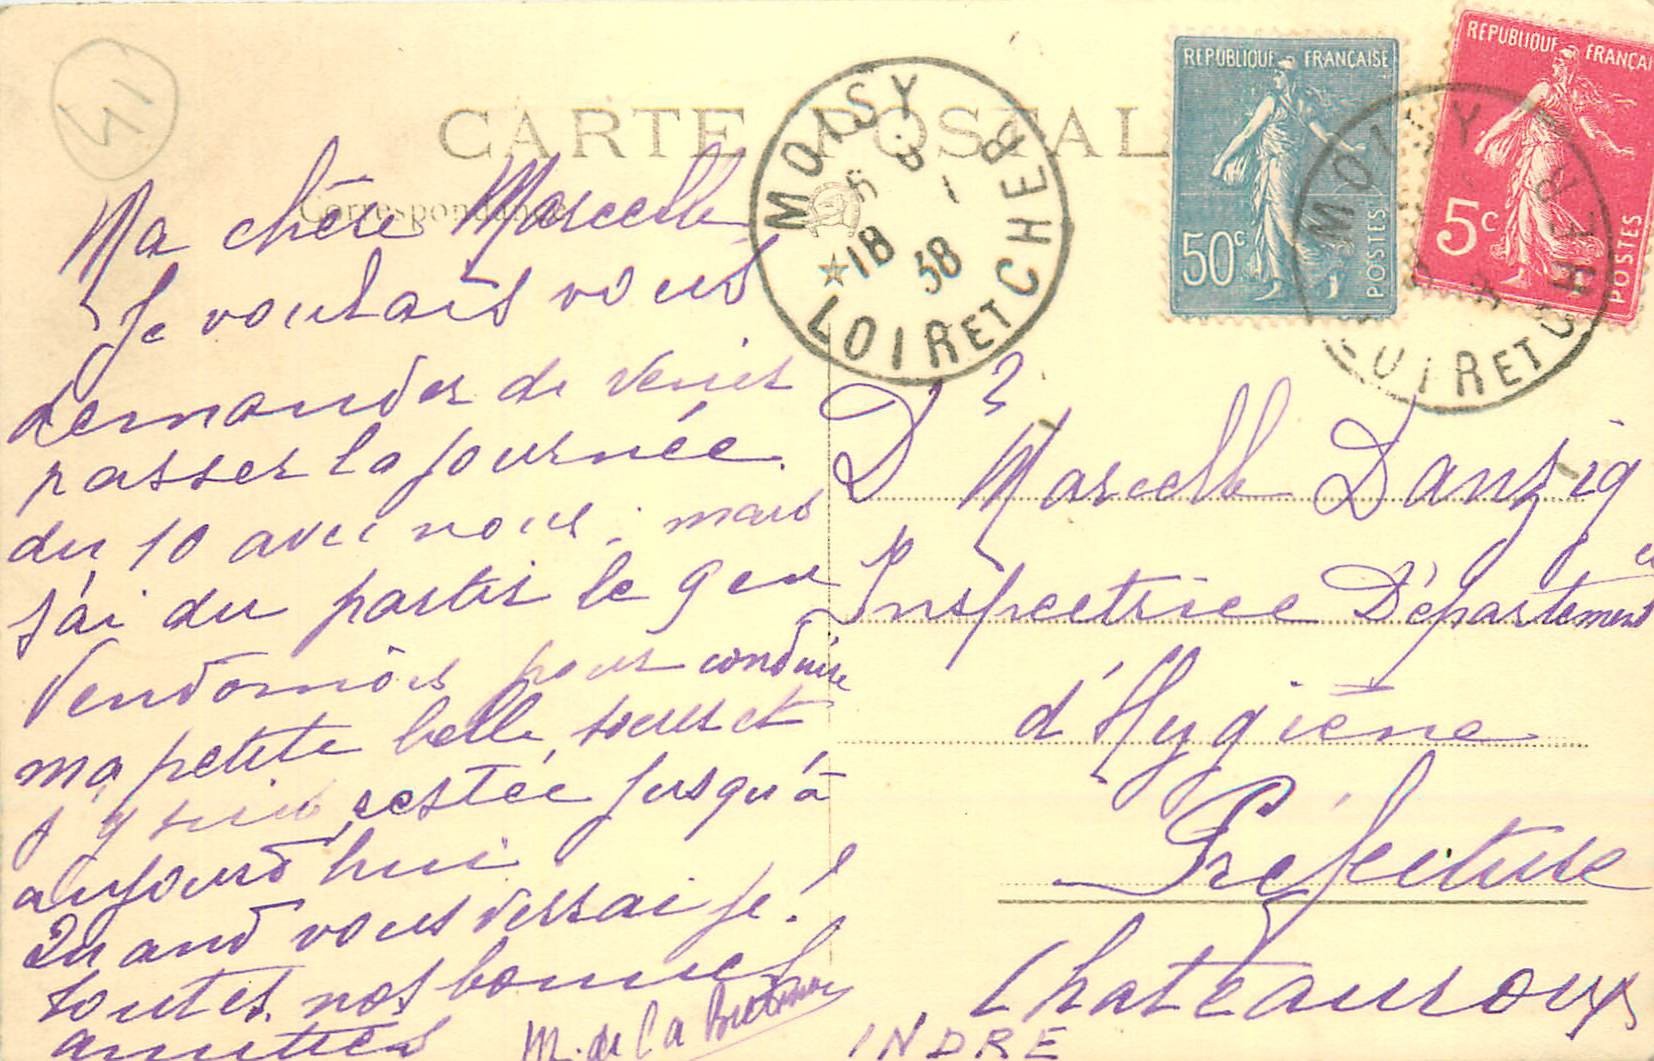 41
CARTE POSTALE
Correspondance
MOISY
18
1
38
LOIR ET CHER
REPUBLIQUE FRANÇAISE
50c
POSTES
REPUBLIQUE FRANÇAI
5c
POSTES
MOISY
LOIR ET CHER
Ma chère Marcelle
Je voulais vous
demander de venir
passer la journée
du 10 avec nous. mais
j'ai du partir le 9 en
Vendomois pour conduire
ma petite belle soeur et
j'y suis restée jusqu'à
aujourd'hui
Quand vous verrai je!
toutes nos bonnes
amitiés
M. de la
Dr Marcelle Danzig
Inspectrice Départementale
d'Hygiène
Préfecture
Chateauroux
INDRE